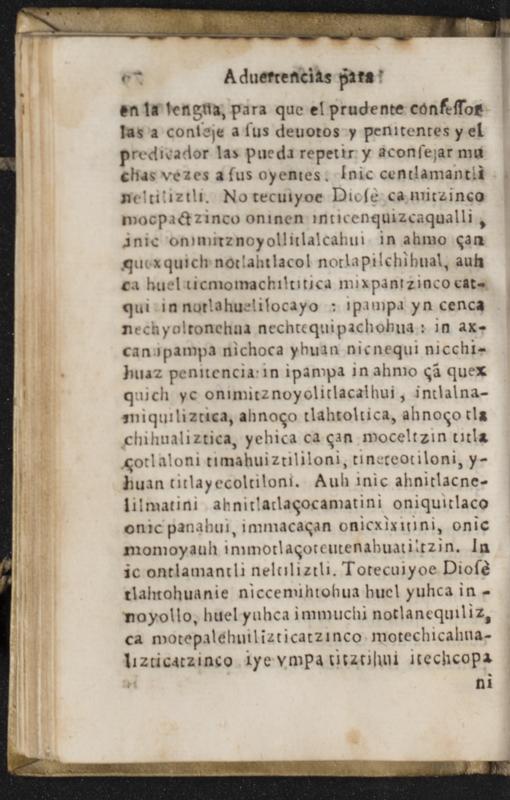 Aduertencias para
en la lengua, para que el prudente confeſſor
las a conſeje a ſus deuotos y penitentes y el
predicador las pueda repetir y aconſejar mu
chas vezes a ſus oyentes. Inic centlamantli
neltiliztli. No tecuiyoe Dioſè ca mitzinco
mocpactzinco oninen inticenquizcaqualli,
inic onimitznoyollitlalcahui in ahmo çan
quexquich notlahtlacol notlapilchihual, auh
ca huel ticmomachiltitica mixpantzinco cat-
qui in notlahuelilocayo : ipampa yn cenca
nechyoltonehua nechtequipachohua : in ax-
can ipampa nichoca yhuan nicnequi nicchi-
huaz penitencia in ipampa in ahmo çã quex
quich yc onimitznoyolitlacalhui, intlalna-
miquiliztica, ahnoço tlahtoltica, ahnoço tla
chihualiztica, yehica ca çan moceltzin titla
çotlaloni timahuiztililoni, tineteotiloni, y-
huan titlayecoltiloni. Auh inic ahnitlacne-
lilmatini ahnitlatlaçocamatini oniquitlaco
onic panahui, immacaçan onicxixitini, onic
momoyauh immotlaçoteutenahuatiltzin. In
ic ontlamantli neltiliztli. Totecuiyoe Dioſè
tlahtohuanie niccemihtohua huel yuhca in -
noyollo, huel yuhca immuchi notlanequiliz,
ca motepalehuilizticatzinco motechicahua-
lizticatzinco iye vmpa titztihui itechcopa
ni